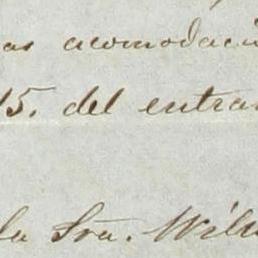 as acomodaci
15. del entra
la Sra. Wil